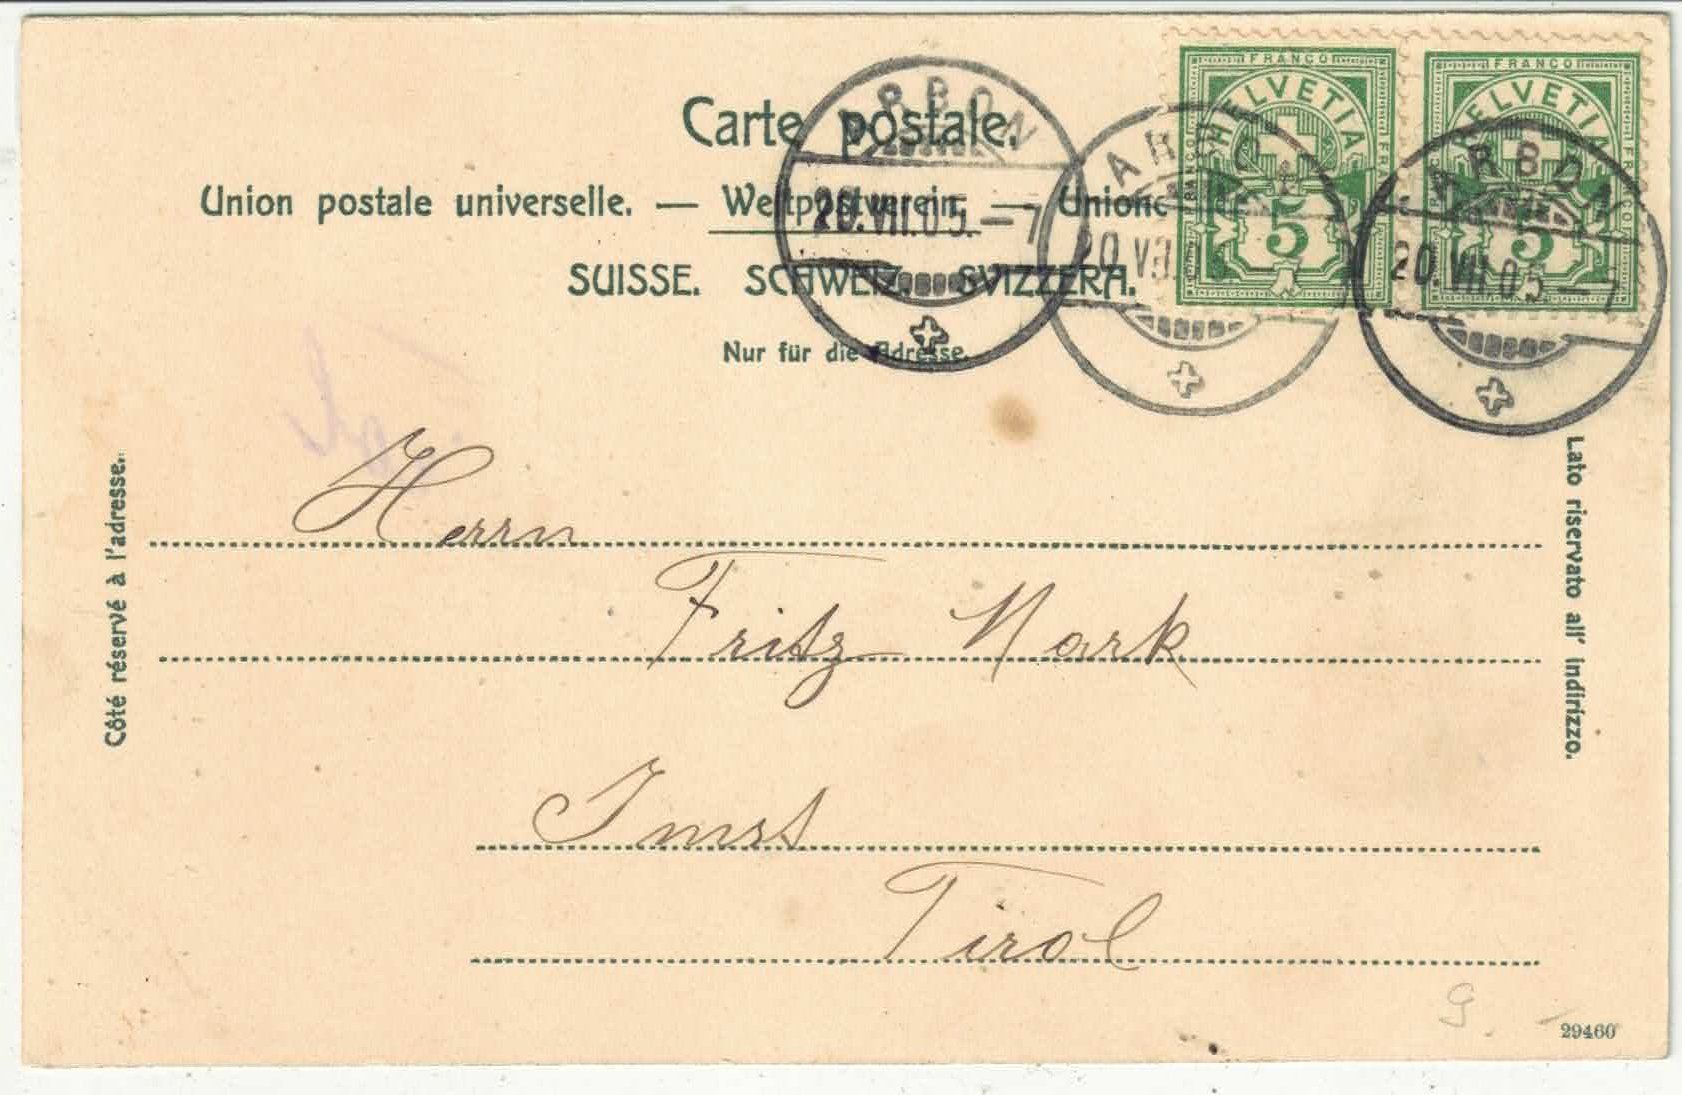 FRANCO FRANCO
HELVETIA HELVETIA
5 5
ARBON ARBON ARBON
20.VII.05.—7 20.VII. 20.VII.05—7
Carte postale.
Union postale universelle. — Weltpostverein. — Unione
SUISSE. SCHWEIZ. SVIZZERA.
Nur für die Adresse.
Côté réservé à l'adresse.
Lato riservato all' indirizzo.
Herrn
Fritz Mark
Imst
Tirol
29460